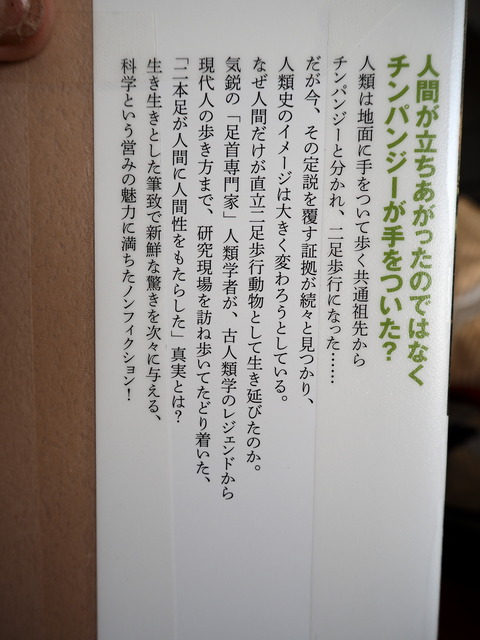 人間が立ちあがったのではなく
チンパンジーが手をついた?
人類は地面に手をついて歩く共通祖先から
チンパンジーと分かれ、二足歩行になった……
だが今、その定説を覆す証拠が続々と見つかり、
人類史のイメージは大きく変わろうとしている。
なぜ人間だけが直立二足歩行動物として生き延びたのか。
気鋭の「足首専門家」人類学者が、古人類学のレジェンドから
現代人の歩き方まで、研究現場を訪ね歩いてたどり着いた、
「二本足が人間に人間性をもたらした」真実とは?
生き生きとした筆致で新鮮な驚きを次々に与える、
科学という営みの魅力に満ちたノンフィクション!